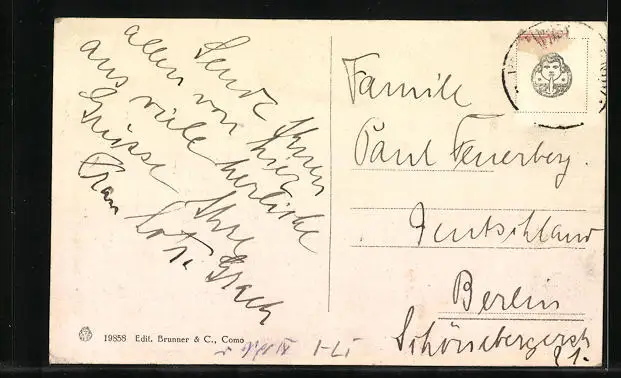 Sende Ihnen
allen von hier
aus viele herzliche
Grüsse Ihre
Frau
Familie
Paul Feuerberg.
Deutschland
Berlin
Schönebergerstr
21.
19858 Edit. Brunner & C., Como